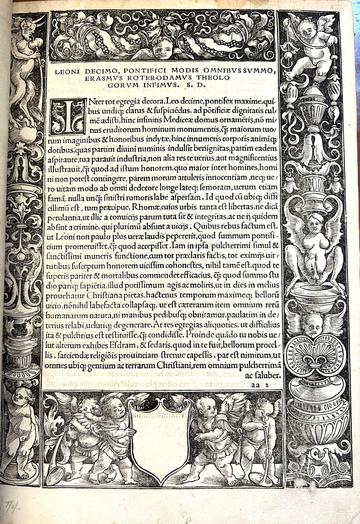 LEONI DECIMO, PONTIFICI MODIS OMNIBVS SVMMO,
ERASMVS ROTERODAMVS THEOLO
GORVM INFIMVS. S. D.
INter tot egregia decora, Leo decime, pontifex maxime, qui-
bus undiq; clarus & suspiciēdus, ad pōtificiæ dignitatis cul-
mē adisti, hinc infinitis Mediceæ domus ornamētis, nō mi-
nus eruditorum hominum monumentis, q̃ maiorum tuo-
rum imaginibus & honoribus inclytæ, hinc innumeris corporis animiq;
dotibus, quas partim diuini numinis indulsit benignitas, partim eadem
aspirante, tua parauit industria, non alia res te uerius, aut magnificentius
illustrauit, q̃ quod ad istum honorem, quo maior inter homines, homi
ni non potest contingere, parem morum attuleris innocentiam, neq; ue-
ro uitam modo ab omni dedecore longe lateq; semotam, uerum etiam
famā, nulla unq̃ sinistri rumoris labe aspersam. Id quod cū ubiq; diffi
cillimū est, tum præcipue, Rhomæ, cuius urbis tanta est libertas, ne dicā
petulantia, ut illic a conuiciis parum tuta sit & integritas, ac ne ij quidem
absint a crimine, qui plurimū absunt a uiciis. Quibus rebus factum est,
ut Leoni non paulo plus ueræ laudis pepererit, quod summum pontifi-
cium promeruisset, q̃ quod accepisset. Iam in ipsa pulcherrimi simul &
sanctissimi muneris functione, cum tot præclaris factis, tot eximijs uir-
tutibus susceptum honorem uicissim cohonestes, nihil tamē est, quod te
superis pariter & mortalibus commendet efficacius, q̃ quod summo stu
dio pariq; sapiētia, illud potissimum agis ac moliris, ut in dies in melius
prouehatur Christiana pietas, hactenus temporum maximeq; bellorū
uicio, nōnihil labefacta collapsaq;, ut est cæterarum item omnium rerū
humanarum natura, ni manibus pedibusq; obnitamur, paulatim in de-
terius relabi, uelutiq; degenerare. At res egregias aliquoties, ut difficilius
ita & pulchrius est restituisse, q̃ condidisse. Proinde quādo tu nobis ue-
lut alterum exhibes Esdram, & sedatis, quod in te fuit, bellorum procel-
lis, sarciendæ religiōis prouinciam strenue capessis, par est nimirum, ut
omnes ubiq; gentium ac terrarum Christiani, rem omnium pulcherrimā
ac saluber.
aa 2